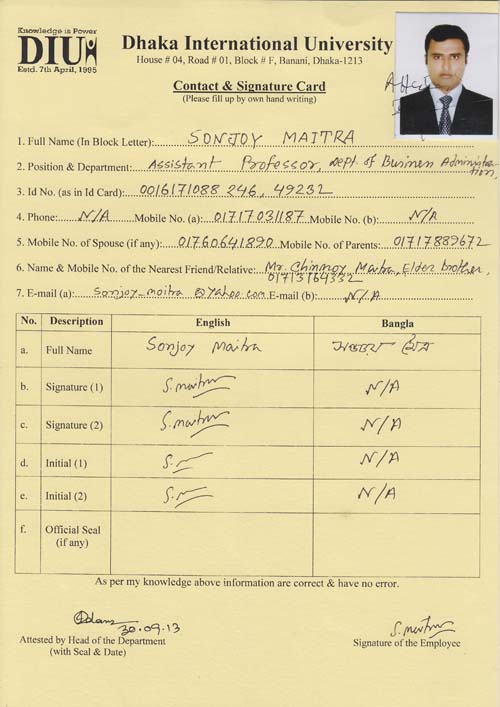 Knowledge is Power
DIU
Estd. 7th April, 1995
Dhaka International University
House # 04, Road # 01, Block # F, Banani, Dhaka-1213
Contact & Signature Card
(Please fill up by own hand writing)
1. Full Name (In Block Letter): SONJOY MAITRA
2. Position & Department: Assistant Professor, Dept. of Business Administration,
3. Id No. (as in Id Card): 0016171088 246, 49232
4. Phone: N/A Mobile No. (a): 01717031187 Mobile No. (b): N/A
5. Mobile No. of Spouse (if any): 01760641890 Mobile No. of Parents: 01717889672
6. Name & Mobile No. of the Nearest Friend/Relative: Mr. Chinmoy Maitra, Elder brother,
01713164332
7. E-mail (a): Sonjoy_moitra @yahoo.com E-mail (b): N/A
No. Description English Bangla
a. Full Name Sonjoy Maitra
b. Signature (1) S. maitra N/A
c. Signature (2) S. maitra N/A
d. Initial (1) S. N/A
e. Initial (2) S. N/A
f. Official Seal
(if any)
As per my knowledge above information are correct & have no error.
30.09.13 S. maitra
Attested by Head of the Department Signature of the Employee
(with Seal & Date)